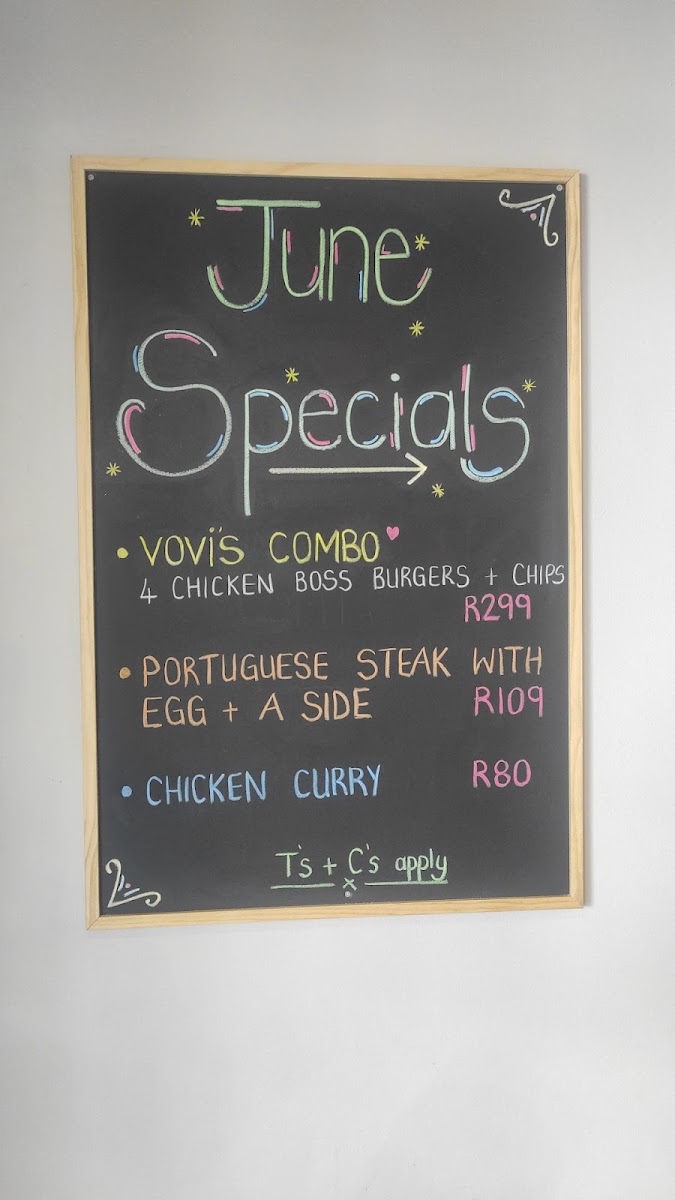 June
Specials
• VOVI'S COMBO
4 CHICKEN BOSS BURGERS + CHIPS
R299
• PORTUGUESE STEAK WITH
EGG + A SIDE R109
• CHICKEN CURRY R80
T's + C's apply